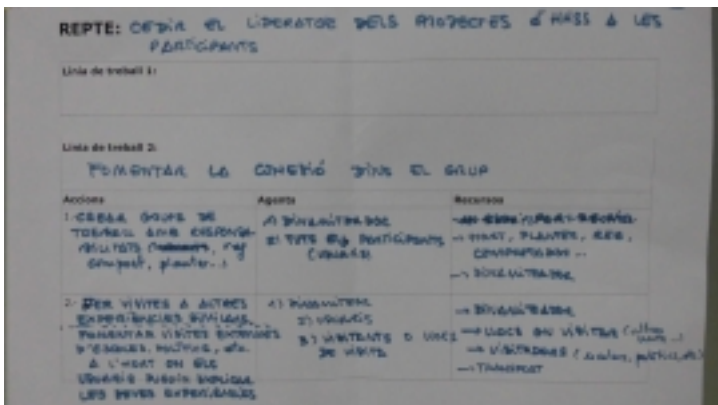 REPTE: CEDIR EL LIDERATGE DELS PROJECTES D'HASS A LES
PARTICIPANTS
Linia de treball 1:
Linia de treball 2:
FOMENTAR LA COHESIÓ DINS EL GRUP
Accions Agents Recursos
1. CREAR GRUPS DE
TREBALL AMB RESPONSA-
BILITATS
compost, planter...)
1) DINAMITZADOR
2) TOTS ELS PARTICIPANTS
→ HORT, PLANTER, REG,
COMPOSTADOR...
→ DINAMITZADOR
2. FER VISITES A ALTRES
EXPERIÈNCIES SIMILARS,
FOMENTAR VISITES EXTERNES
D'ESCOLES, POLÍTICS, etc.
A L'HORT ON ELS
USUARIS PUGUIN EXPLICAR
LES SEVES EXPERIÈNCIES
1)
2) USUARIS
3) VISITANTS O LLOCS
DE VISITA
→ DINAMITZADOR
→ LLOCS ON VISITAR
→ VISITADORS (escoles, polítics, etc)
→ TRANSPORT